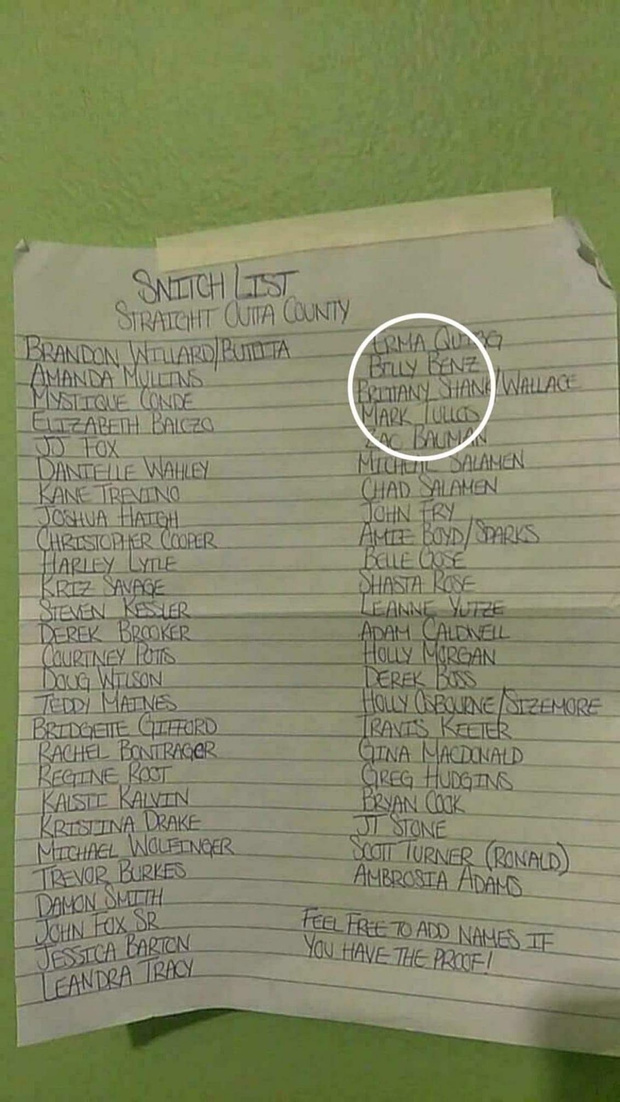 SNITCH LIST
STRAIGHT OUTTA COUNTY
BRANDON WILLARD/BUTITTA
AMANDA MULLINS
MYSTIQUE CONDE
ELIZABETH BALCZO
JJ FOX
DANIELLE WAHLEY
KANE TREVINO
JOSHUA HAIGH
CHRISTOPHER COOPER
HARLEY LYTLE
KRIZ SAVAGE
STEVEN KESSLER
DEREK BROOKER
COURTNEY POTTS
DOUG WILSON
TEDDY MAINES
BRIDGETTE GIFFORD
RACHEL BONTRAGER
REGINE ROOT
KALSTI KALVIN
KRISTINA DRAKE
MICHAEL WOLFINGER
TREVOR BURKES
DAMON SMITH
JOHN FOX SR
JESSICA BARTON
LEANDRA TRACY
ERMA
BILLY BENZ
BRITTANY SHANK/WALLACE
MARK TULLOS
ZAC BAUMAN
SALAMEN
CHAD SALAMEN
JOHN FRY
AMIE BOYD/SPARKS
BELLE GOSE
SHASTA ROSE
LEANNE YUTZE
ADAM CALDWELL
HOLLY MORGAN
DEREK BOSS
HOLLY OSBOURNE/SIZEMORE
TRAVIS KEETER
GINA MACDONALD
GREG HUDGINS
BRYAN COOK
JT STONE
SCOTT TURNER (RONALD)
AMBROSIA ADAMS
FEEL FREE TO ADD NAMES IF
YOU HAVE THE PROOF!